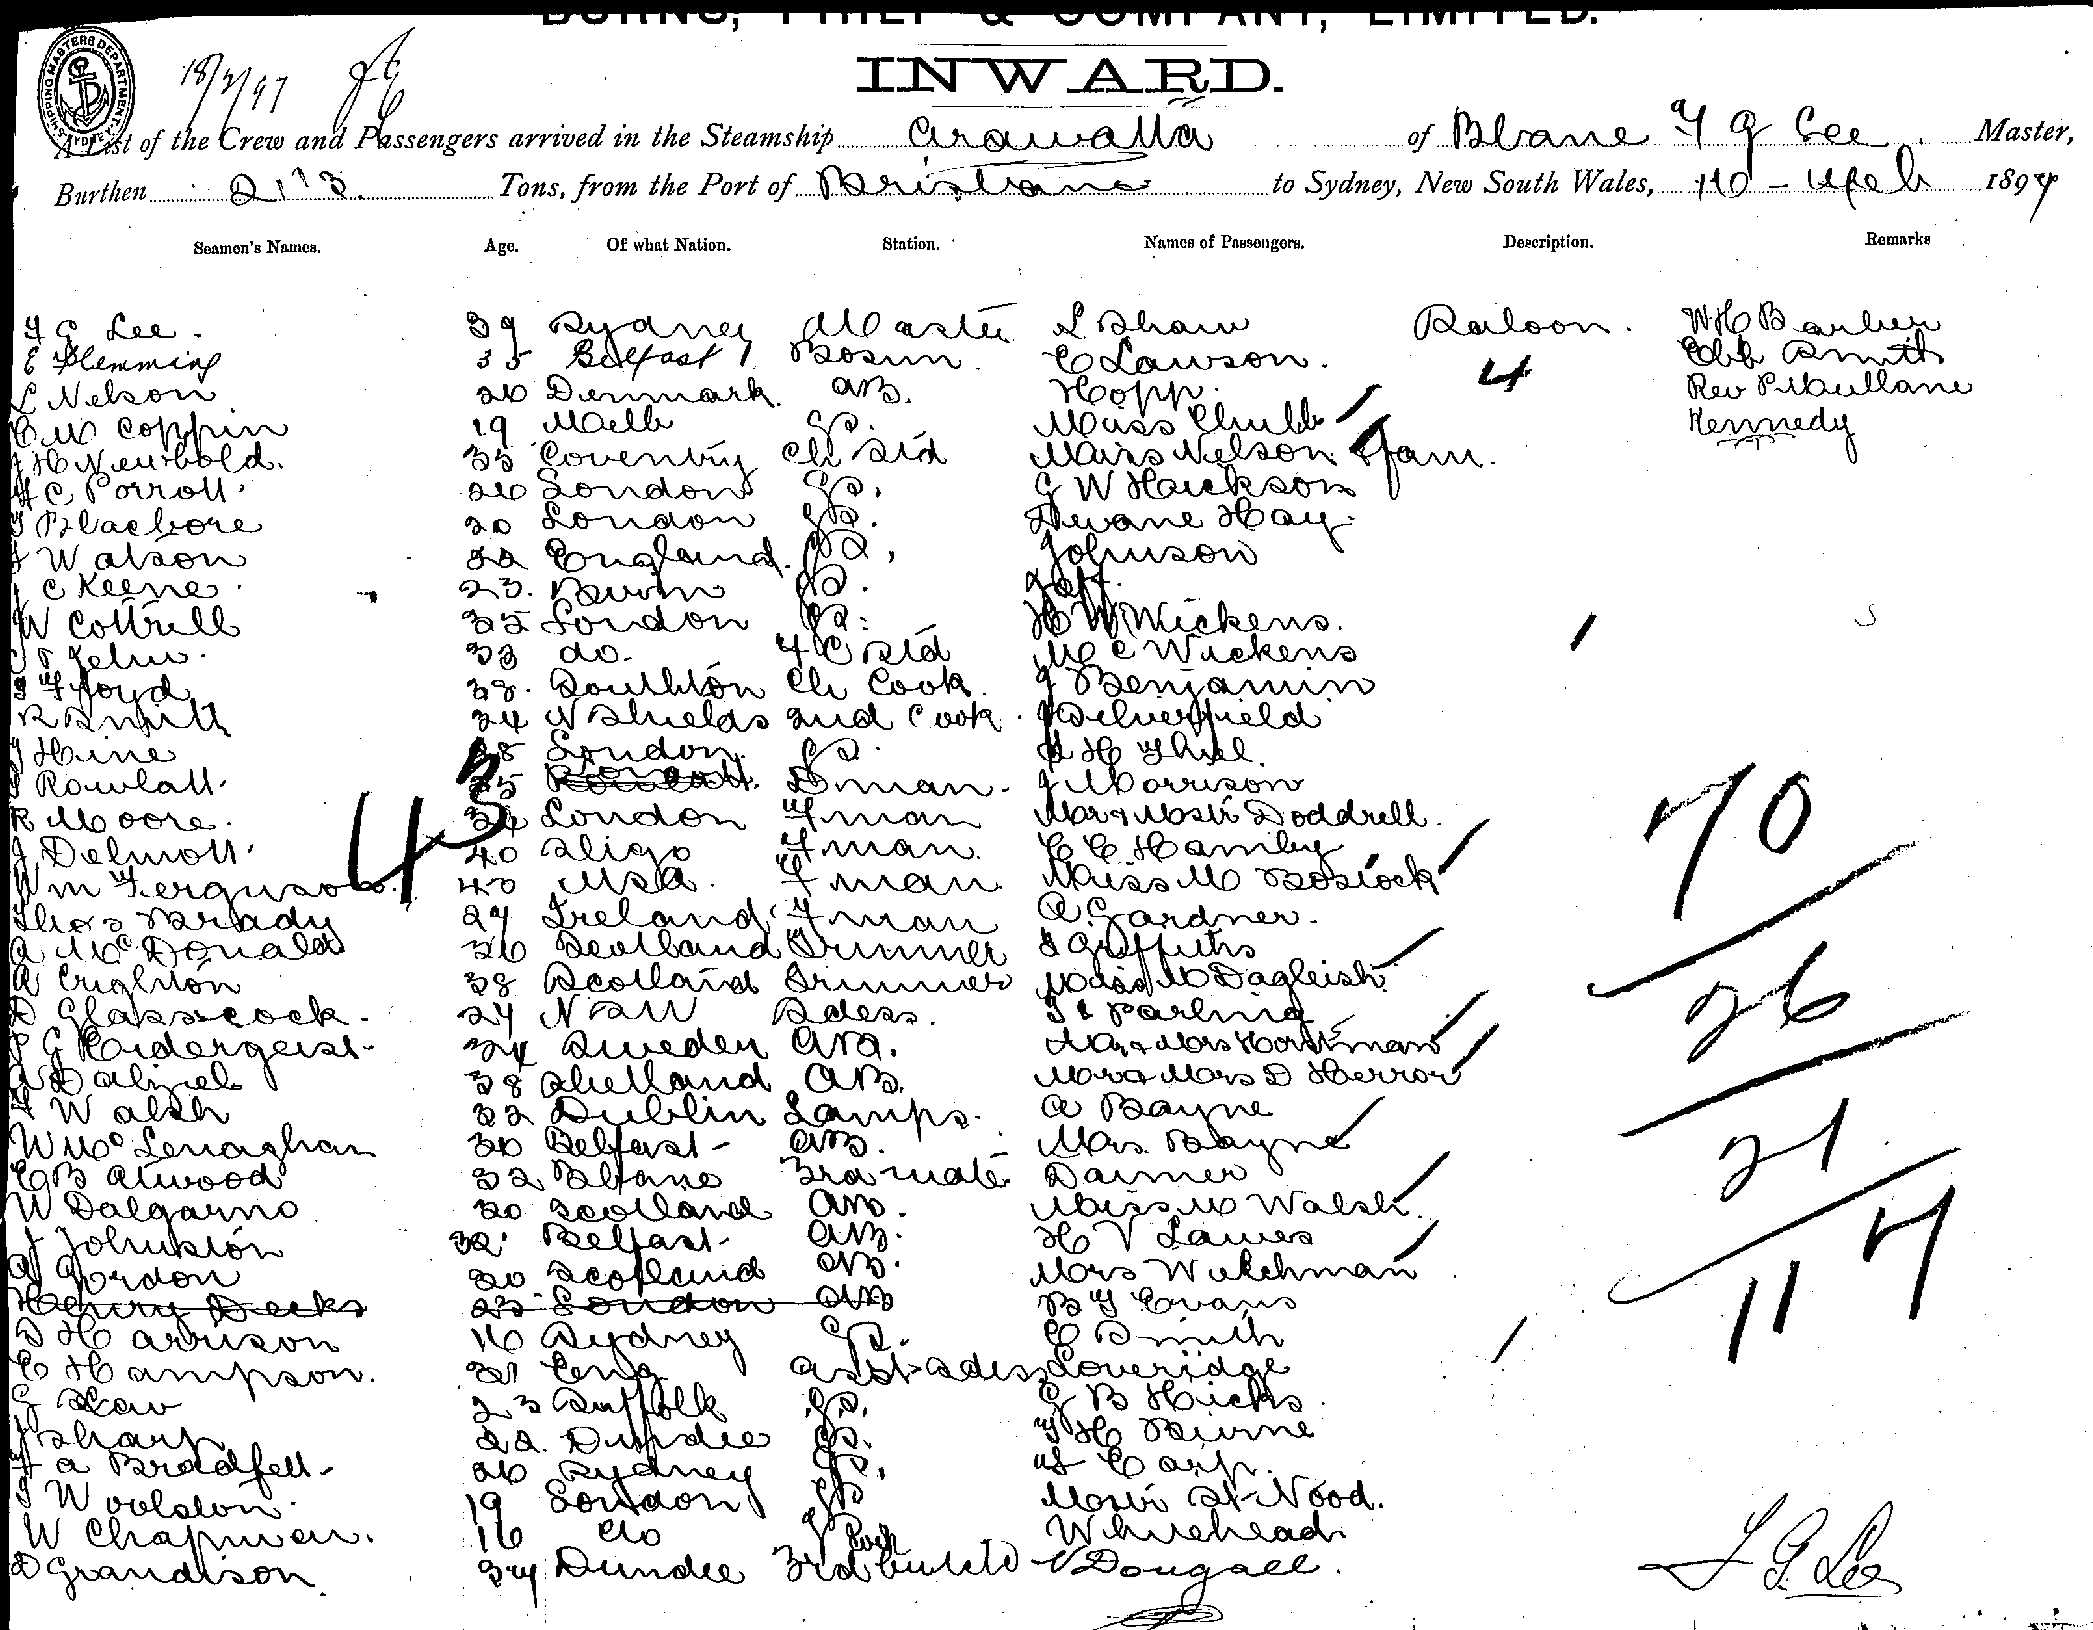 BURNS, PHILP & COMPANY, LIMITED.
INWARD.
SHIPPING MASTERS DEPARTMENT SYDNEY
18/3/97
A List of the Crew and Passengers arrived in the Steamship Arawatta of Bbane F G Lee Master,
Burthen 2113 Tons, from the Port of Brisbane to Sydney, New South Wales, 1897
Seamen's Names. Age. Of what Nation. Station. Names of Passengers. Description. Remarks
F G Lee 39 Sydney Master L Shaw Saloon. W H Barber
E Flemming 35 Belfast Bosun C Lawson. 4 Smith
L Nelson 26 Denmark AB. Hopp. Rev P Mullane
C W Coppin 19 Melb Miss Chubb Kennedy
J H Newbold. 35 Coventry Ch Std Miss Nelson
26 London G W Hackson
Blackore 20 London Hay
J Watson 22 England. Johnson
J C Keene 23.
W Cottrell 35 London H W Wickens.
33 do. F C Std M C Wickens
Floyd 38. Soulhton Ch Cook. J Benjamin
R Smith 34 N Shields 2nd Cook J Silverfield
J Hine 28 London H Thiel
Rowlatt 35 D man. J Morrison
R Moore. 43 34 London F man Doddrell. 70
J Delmott 40 Sligo F man. C C Hamby
Wm Ferguson. 40 USA. F man. Miss M Bostock
Thos Brady 27 Ireland F man A Gardner.
A McDonald 36 Scotland Trimmer Griffiths 26
A Crighton 38 Scotland Trimmer Miss M Dagleish
D Glasscock. 24 NSW Sdess. Parling
34 Sweden AB. Mr & Mrs Horstman
Dalziel 38 Shetland AB. Mr & Mrs D Herron
W Walsh 22 Dublin Lamps. A Bayne
W McLenaghan 30 Belfast AB. Mrs Bayne 21
E B Atwood 32 Bbane 3rd mate Darmer
W Dalgarno 20 Scotland AB. Miss M Walsh.
J Johnston 32 Belfast AB. H V Lawes
A Gordon 20 Scotland AB. Mrs Welchman 117
Henry Decks 23 London AB B J Evans
D Harrison 16 Sydney C Smith
C Hampson. 31 Eng Asst Sdess Loveridge
G Law 23 Suffolk G B Hicks.
J Sharp 22. Dundee F H Birne
F A Bradfell 26 Sydney Earp.
Woolston 19 London Wood.
W Chapman. 16 do Whitehead
D Grandison 34 Dundee 3rd Dougall.
F G Lee